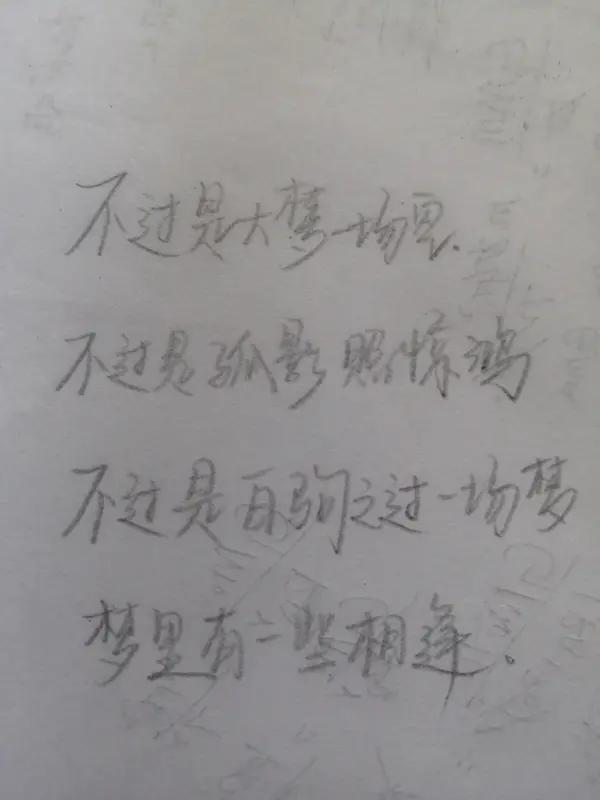 不过是大梦一场里、
不过是孤影照惊鸿
不过是白驹之过一场梦
梦里有一些相逢。